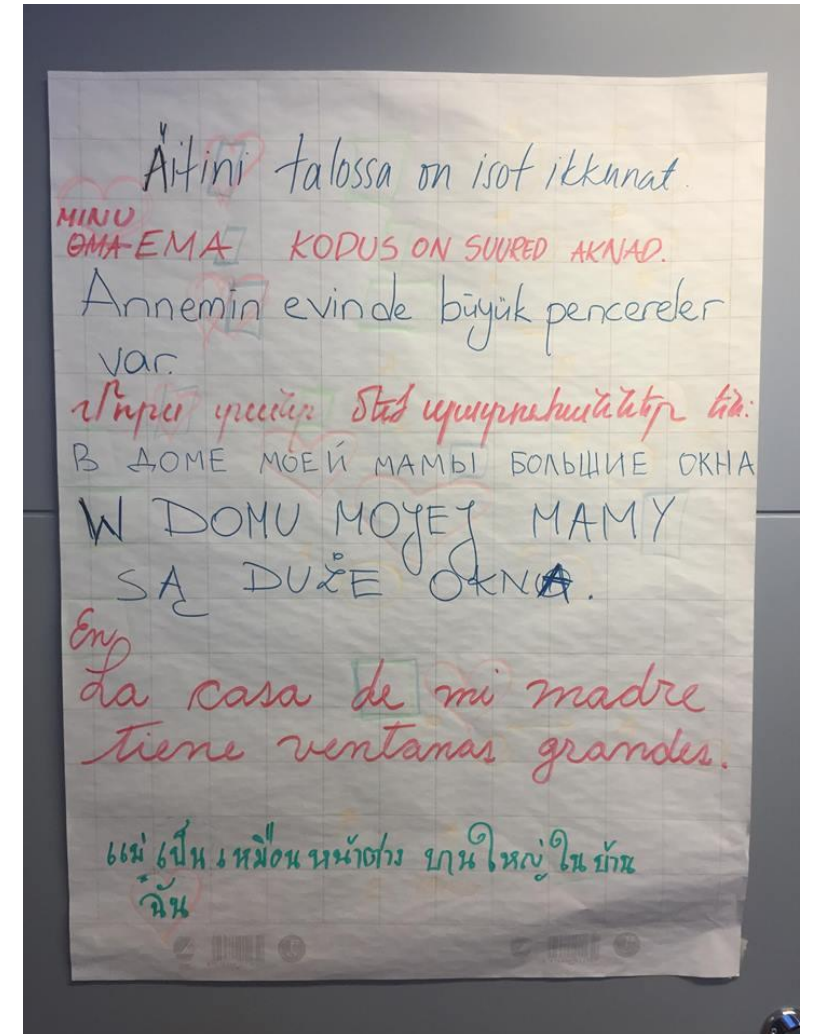 Äitini talossa on isot ikkunat.
MINU
OMA EMA KODUS ON SUURED AKNAD.
Annemin evinde büyük pencereler
var.
Մորս տանը մեծ պատուհաններ են:
В ДОМЕ МОЕЙ МАМЫ БОЛЬШИЕ ОКНА
W DOMU MOJEJ MAMY
SĄ DUŻE OKNA.
En
La casa de mi madre
tiene ventanas grandes.
แม่ เป็น เหมือน หน้าต่าง บานใหญ่ ใน บ้าน
ฉัน